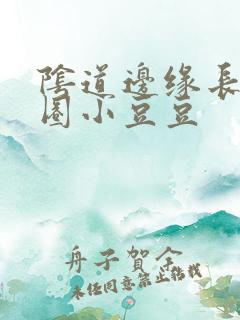 陰道邊缘長
圈小豆豆
舟子賀舍
未经同意禁止转载